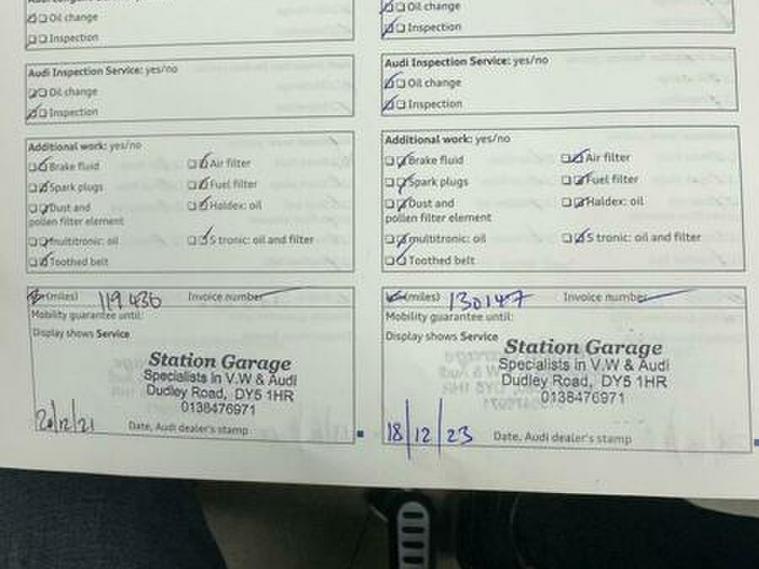 Oil change
Inspection
Audi Inspection Service: yes/no
Oil change
Inspection
Additional work: yes/no
Brake fluid
Air filter
Spark plugs
Fuel filter
Dust and
pollen filter element
Haldex: oil
multitronic: oil
S tronic: oil and filter
Toothed belt
(miles) 119 436 Invoice number
Mobility guarantee until:
Display shows Service
Station Garage
Specialists in V.W & Audi
Dudley Road, DY5 1HR
0138476971
20/12/21
Date, Audi dealer's stamp
Oil change
Inspection
Audi Inspection Service: yes/no
Oil change
Inspection
Additional work: yes/no
Brake fluid
Air filter
Spark plugs
Fuel filter
Dust and
pollen filter element
Haldex: oil
multitronic: oil
S tronic: oil and filter
Toothed belt
(miles) 130147 Invoice number
Mobility guarantee until:
Display shows Service
Station Garage
Specialists in V.W & Audi
Dudley Road, DY5 1HR
0138476971
18/12/23
Date, Audi dealer's stamp